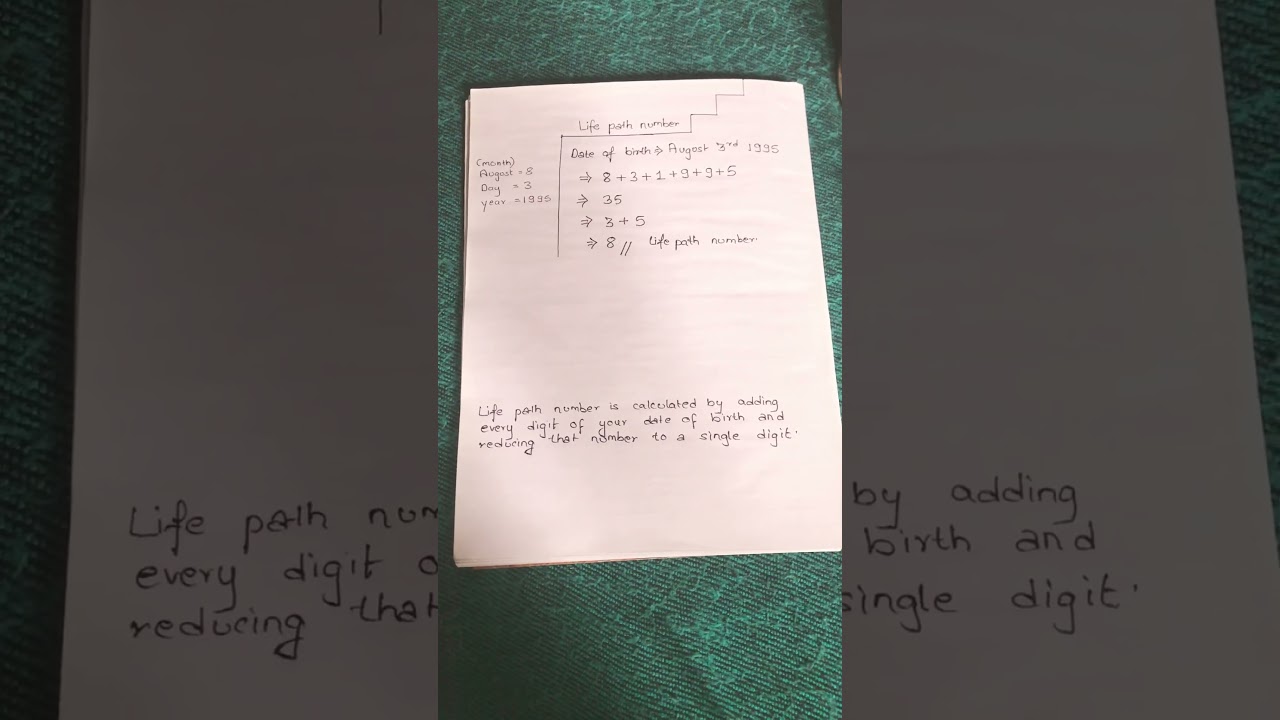 Life path number
(month)
August = 8
Day = 3
year = 1995
Date of birth ⇒ August 3rd 1995
⇒ 8+3+1+9+9+5
⇒ 35
⇒ 3+5
⇒ 8 // Life path number.
Life path number is calculated by adding
every digit of your date of birth and
reducing that number to a single digit.
Life path num
every digit o
reducing that
by adding
birth and
single digit.